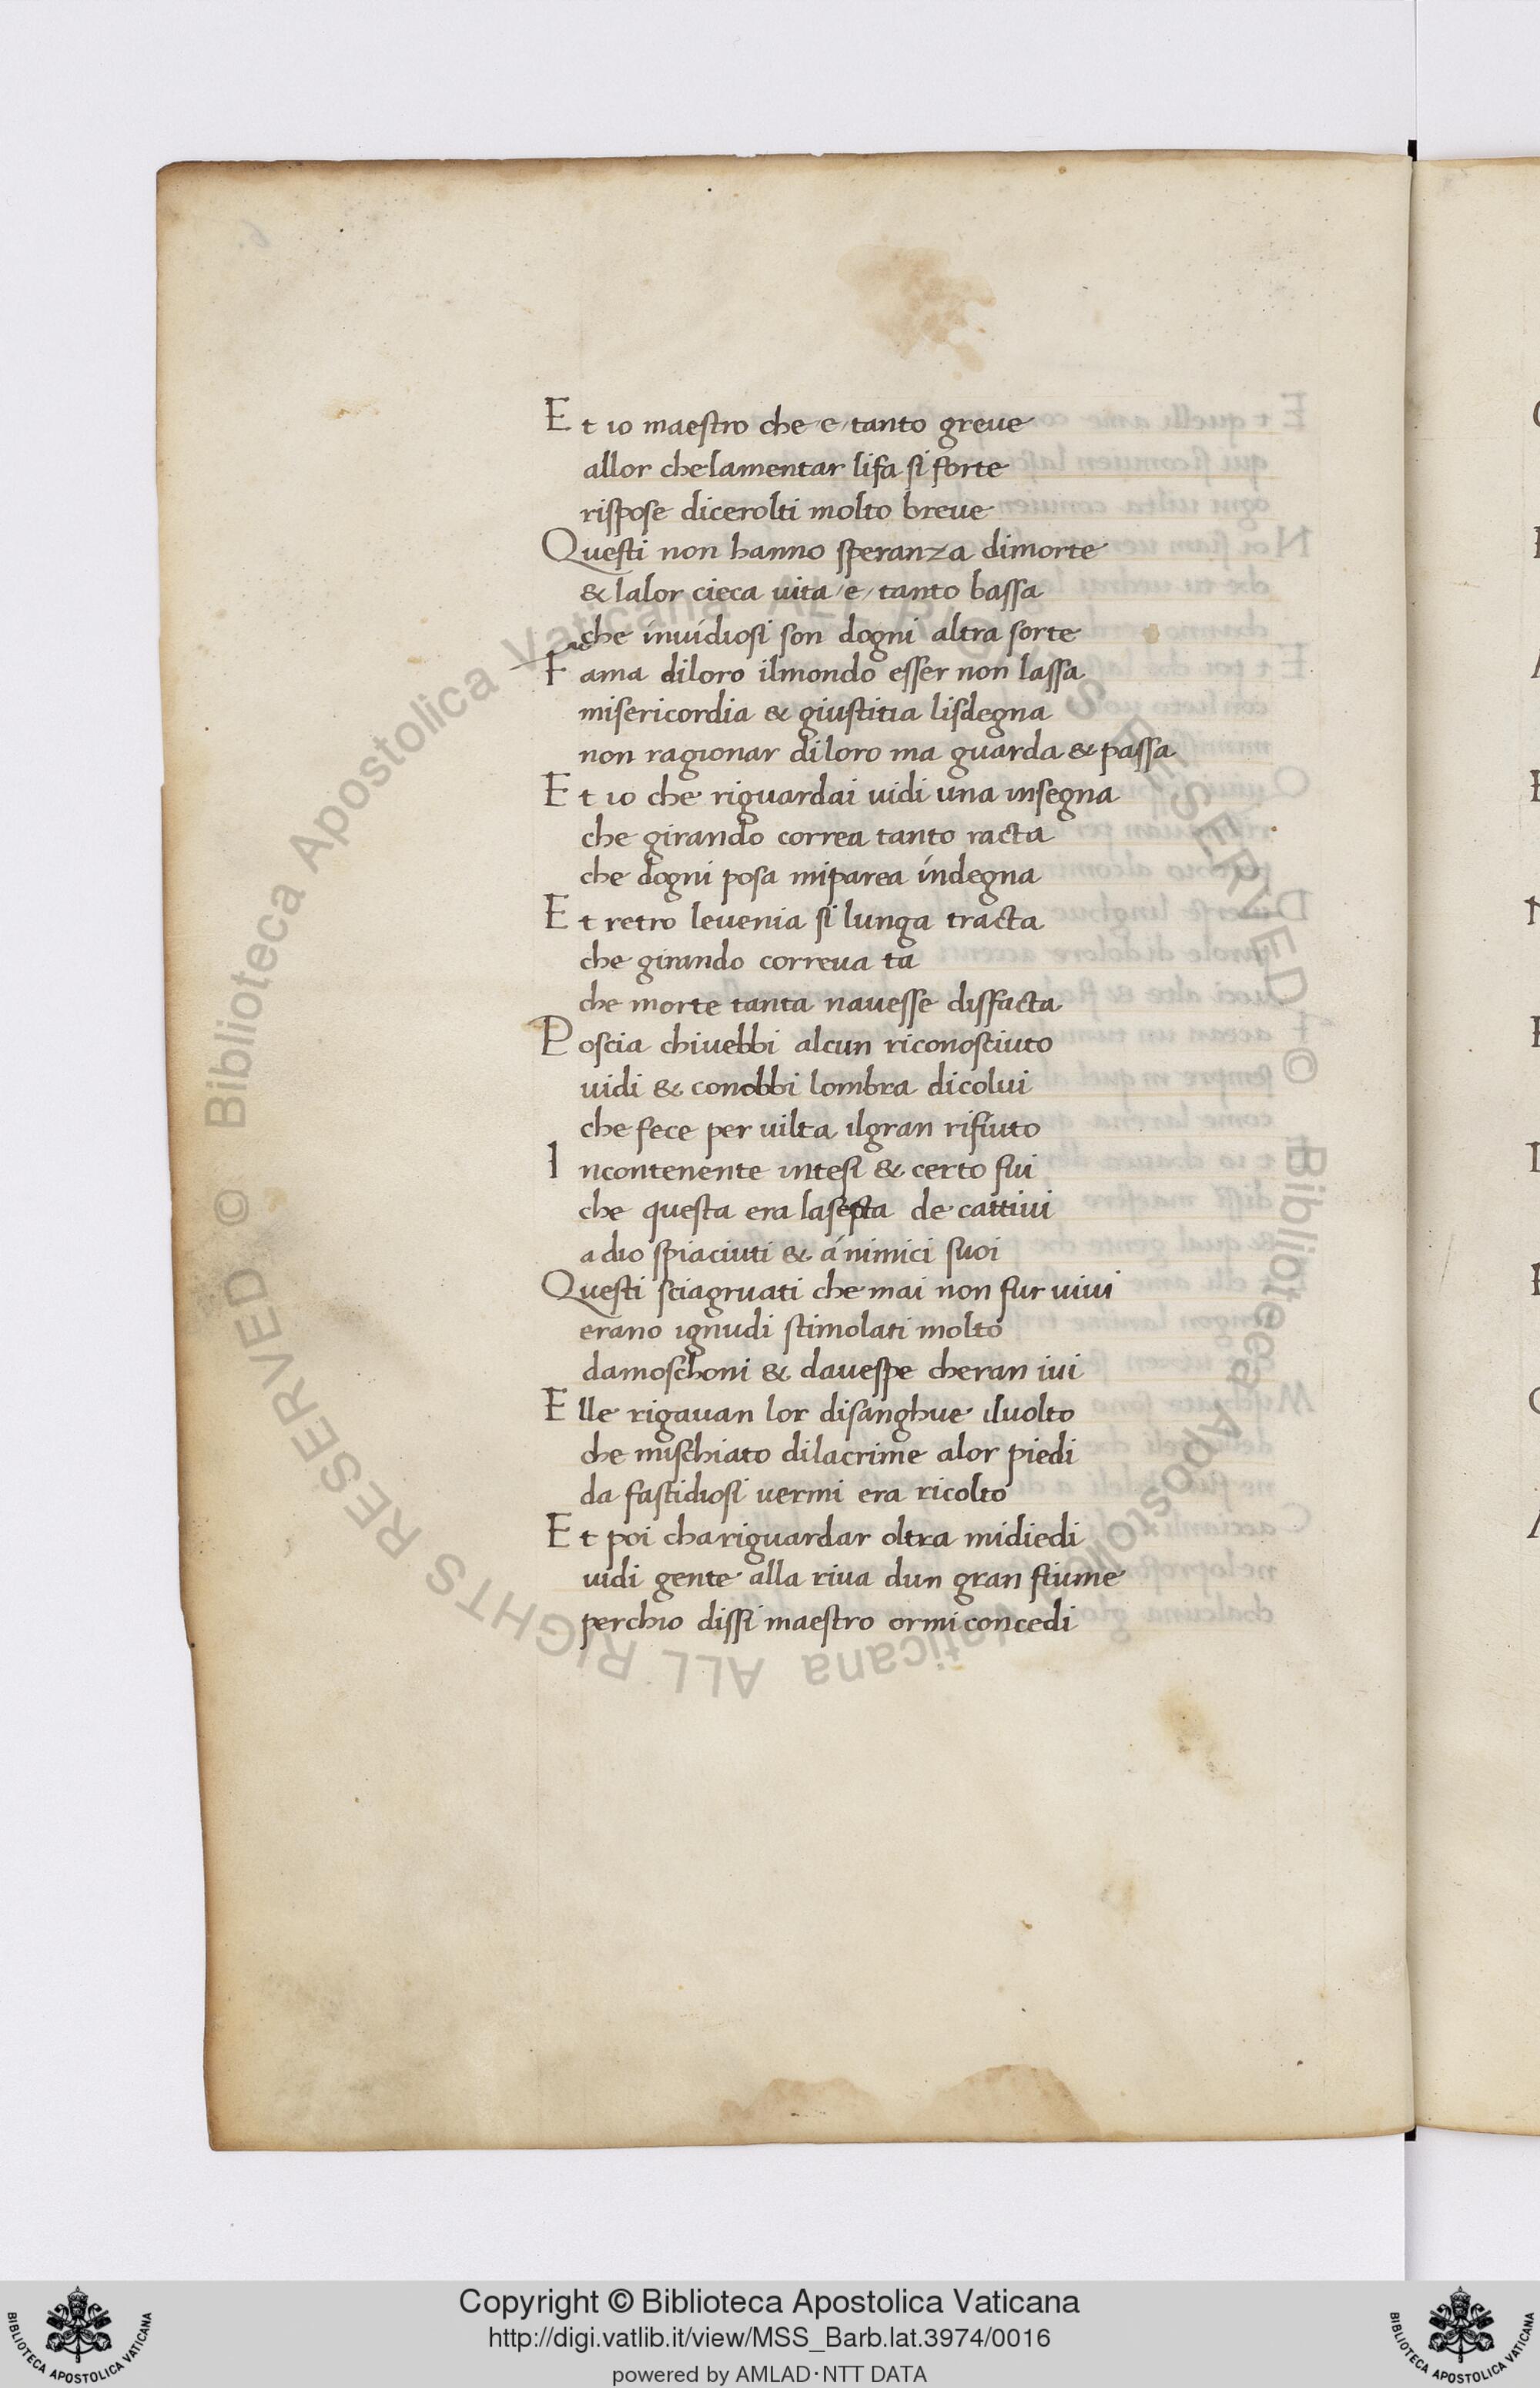 Et io maestro che /e/ tanto greue
allor chelamentar lifa si forte
rispose dicerolti molto breue
Questi non hanno speranza dimorte
& lalor cieca uita /e/ tanto bassa
che inuidiosi son dogni altra sorte
Fama diloro ilmondo esser non lassa
misericordia & giustitia lisdegna
non ragionar diloro ma guarda & passa
Et io che riguardai uidi una insegna
che girando correa tanto racta
che dogni posa miparea indegna
Et retro leuenia si lunga tracta
che girando correua ta
che morte tanta nauesse disfacta
Poscia chiuebbi alcun riconosciuto
uidi & conobbi lombra dicolui
che fece per uilta ilgran rifiuto
Incontenente intesi & certo fui
che questa era lasepta de cattiui
a dio spiaciuti & a nimici suoi
Questi sciagruati che mai non fur uiui
erano ignudi stimolati molto
damoschoni & dauespe cheran iui
Elle rigauan lor disanghue iluolto
che mischiato dilacrime alor piedi
da fastidiosi uermi era ricolto
Et poi chariguardar oltra midiedi
uidi gente alla riua dun gran fiume
perchio dissi maestro ormi concedi
Copyright © Biblioteca Apostolica Vaticana
http://digi.vatlib.it/view/MSS_Barb.lat.3974/0016
powered by AMLAD·NTT DATA